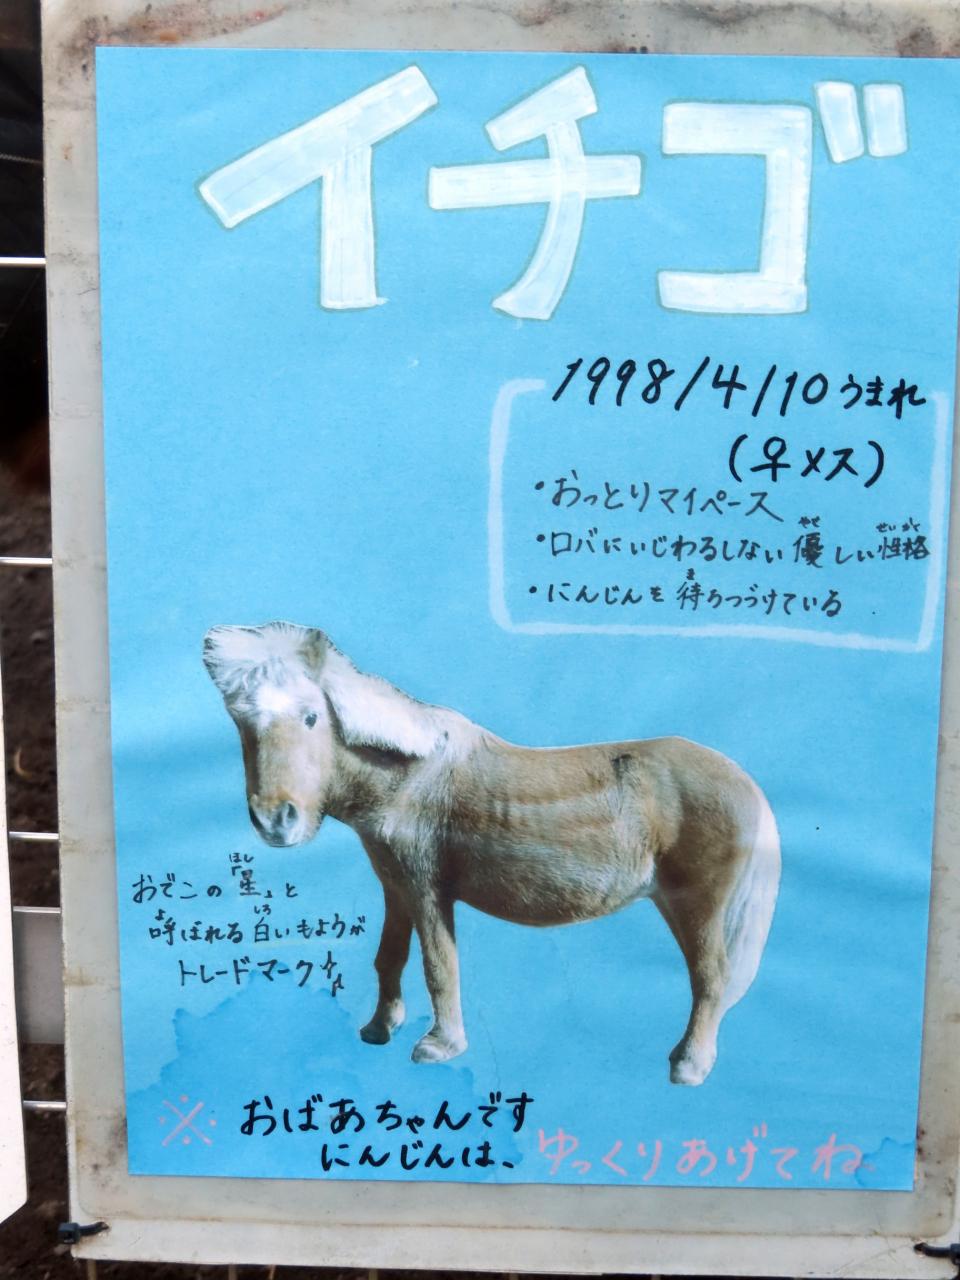 イチゴ
1998/4/10うまれ
(♀メス)
・おっとりマイペース
・ロバにいじわるしない優しい性格
やさ せいかく
・にんじんを待ちつづけている
ま
おでこの「星」と
ほし
呼ばれる白いもようが
よ しろ
トレードマーク☆
※ おばあちゃんです
にんじんは、ゆっくりあげてね